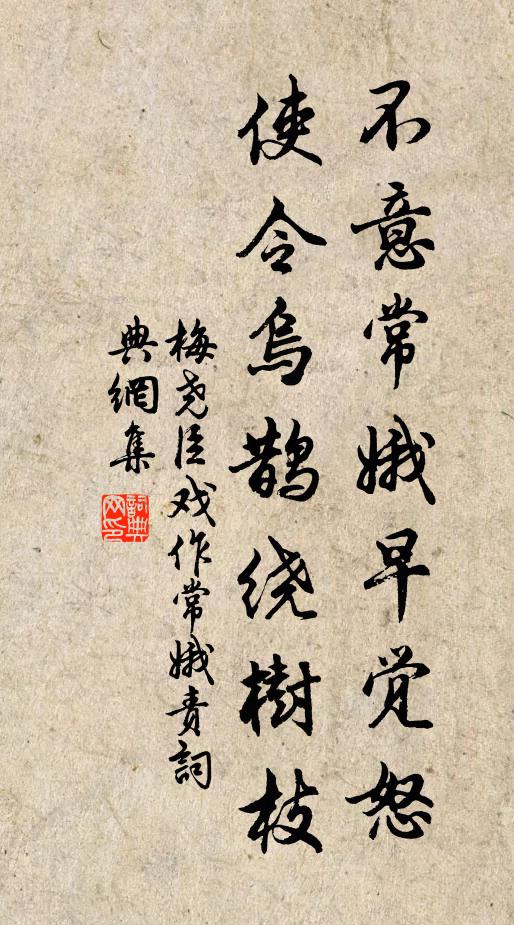 不意常娥早觉怒
使令乌鹊绕樹枝
梅尧臣戏作常娥责詞
典網集
詞典网印